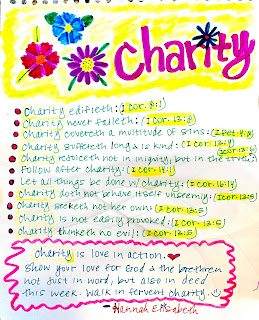 Charity
Charity edifieth: (1 Cor. 8:1)
Charity never faileth: (1 Cor. 13:8)
Charity covereth a multitude of sins: (1 Pet. 4:8)
Charity suffereth long & is kind: (1 Cor. 13:4)
Charity rejoiceth not in iniquity, but in the truth: (1 Cor. 13:6)
Follow after charity: (1 Cor. 14:1)
Let all things be done w/ charity: (1 Cor. 16:14)
Charity doth not behave itself unseemly: (1 Cor. 13:5)
Charity seeketh not her own: (1 Cor. 13:5)
Charity is not easily provoked: (1 Cor. 13:5)
Charity thinketh no evil: (1 Cor. 13:5)
Charity is love in action.
Show your love for God & the brethren
not just in word, but also in deed
this week. Walk in fervent charity.
- Hannah Elisabeth